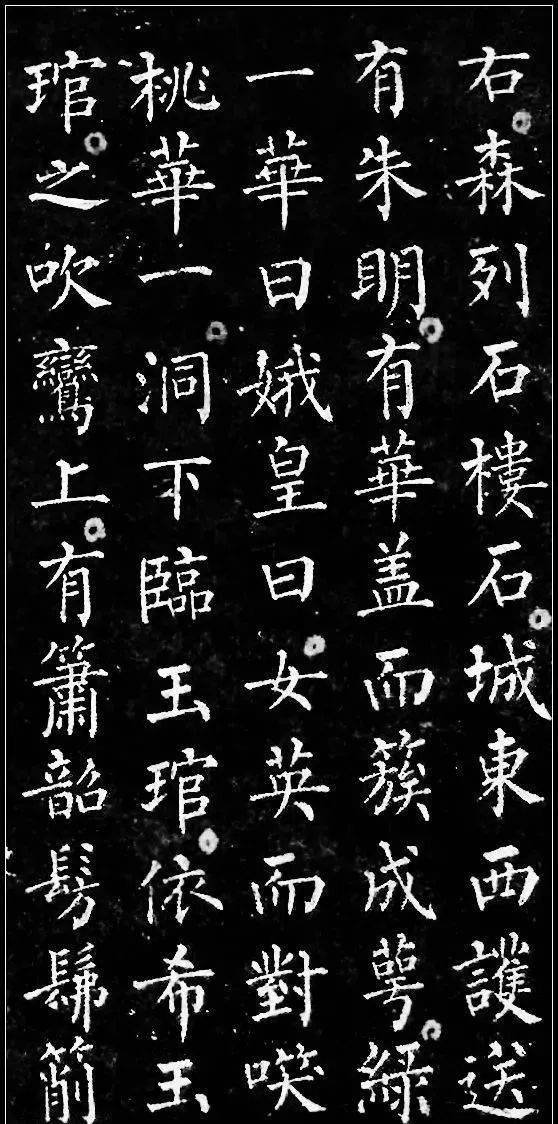 右森列石樓石城東西護送
有朱明有華盖而簇成萼綠
一華曰娥皇曰女英而對㗛
桃華一洞下臨玉琯依希玉
琯之吹鸞上有簫韶髣髴簫